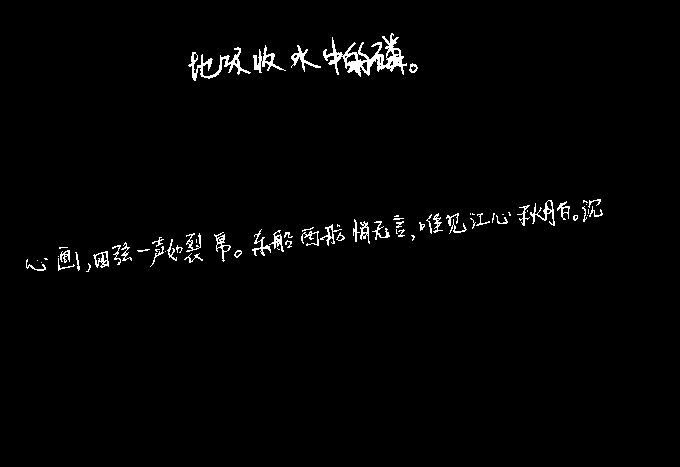 地吸收水中的磷。
心画,四弦一声如裂帛。东船西舫悄无言,唯见江心秋月白。沉